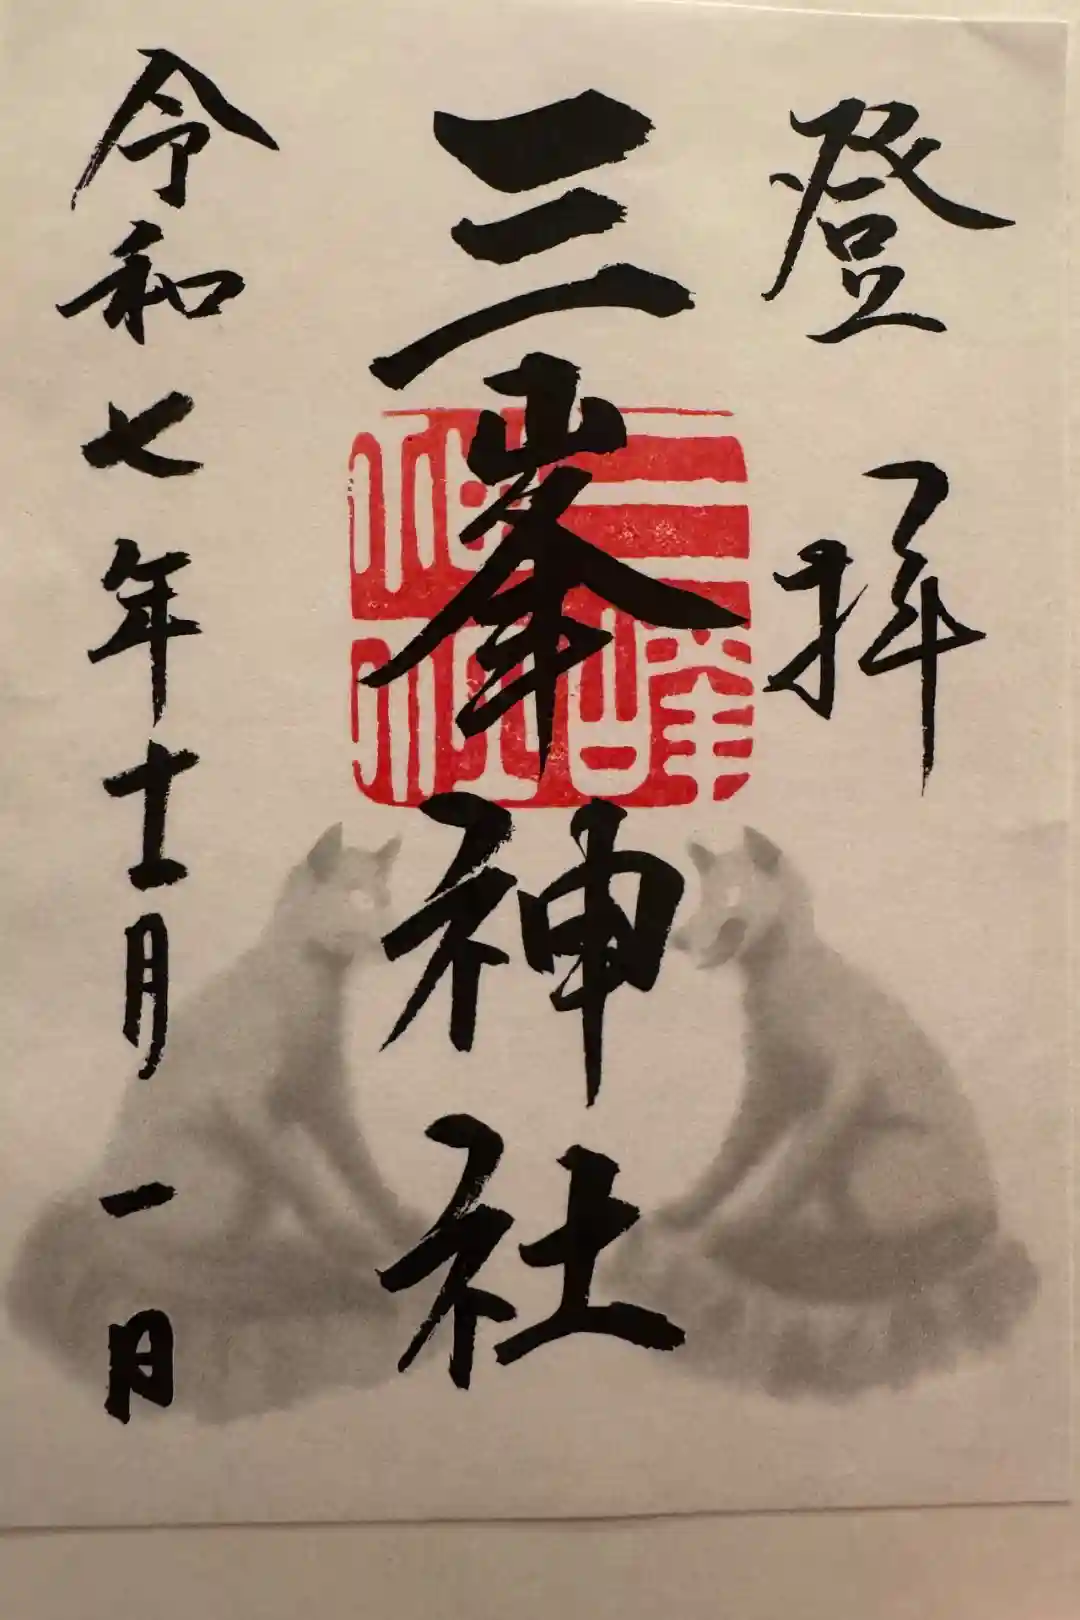 登拝
三峯神社
三峰神社
令和七年十一月一日